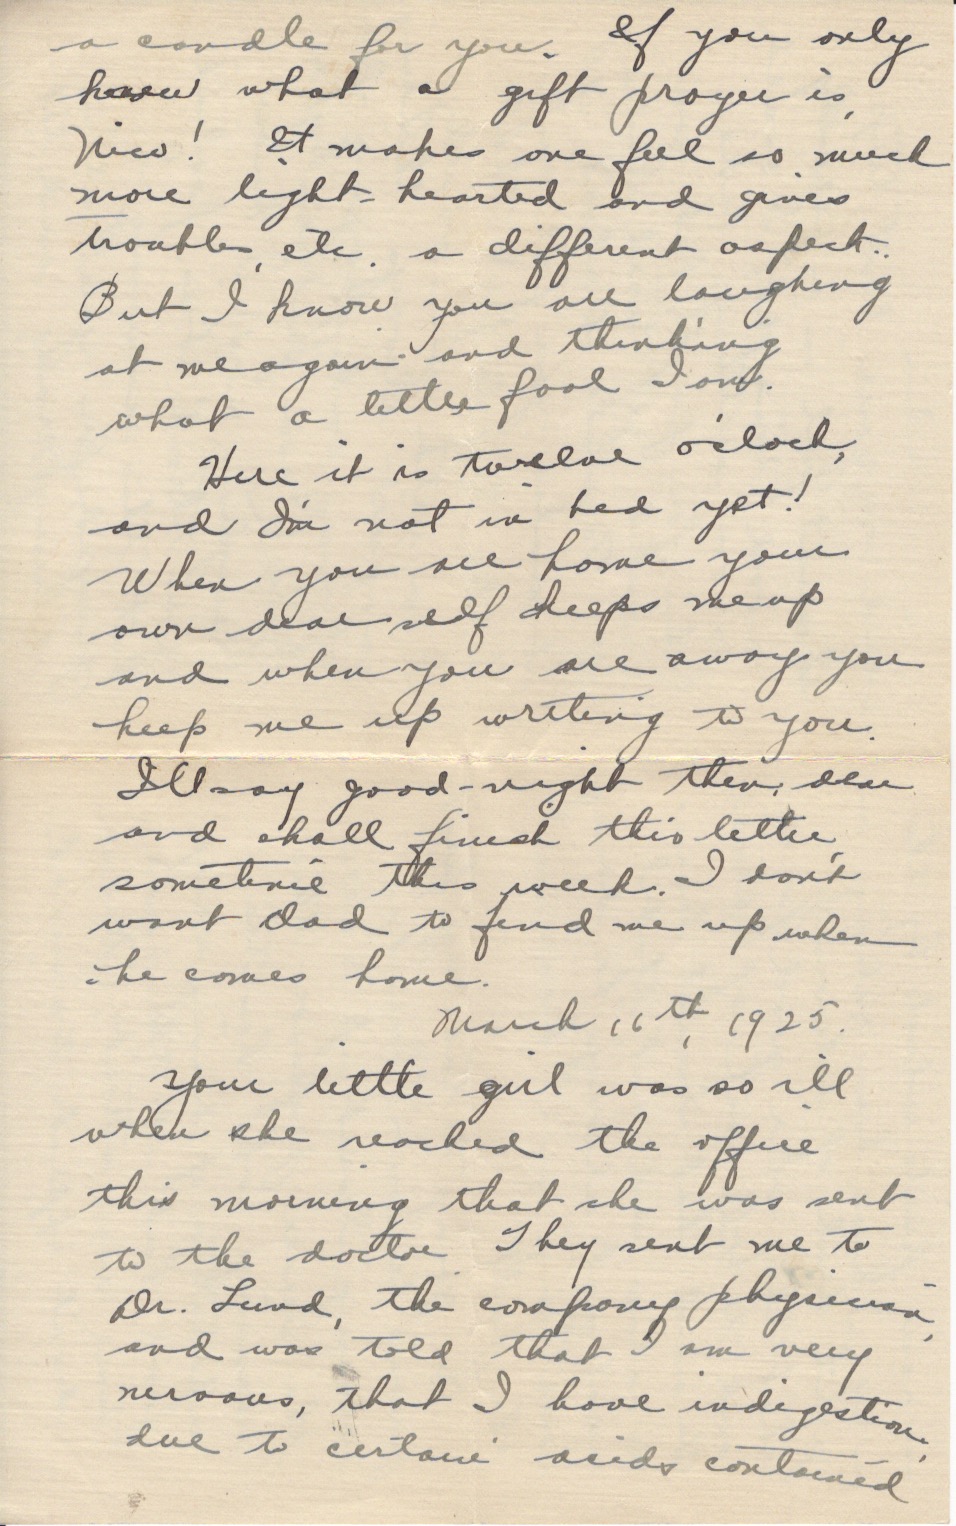 a candle for you. If you only
knew what a gift prayer is,
Nico! It makes one feel so much
more light-hearted and gives
troubles, etc. a different aspect..
But I know you are laughing
at me again and thinking
what a little fool I am.
Here it is twelve o'clock,
and I'm not in bed yet!
When you are home your
own dear self keeps me up
and when you are away you
keep me up writing to you.
I'll say good-night then, dear
and shall finish this letter
sometime this week. I don't
want Dad to find me up when
he comes home.
March 16th, 1925.
Your little girl was so ill
when she reached the office
this morning that she was sent
to the doctor. They sent me to
Dr. Lund, the company physician,
and was told that I am very
nervous, that I have indigestion,
due to certain acids contained